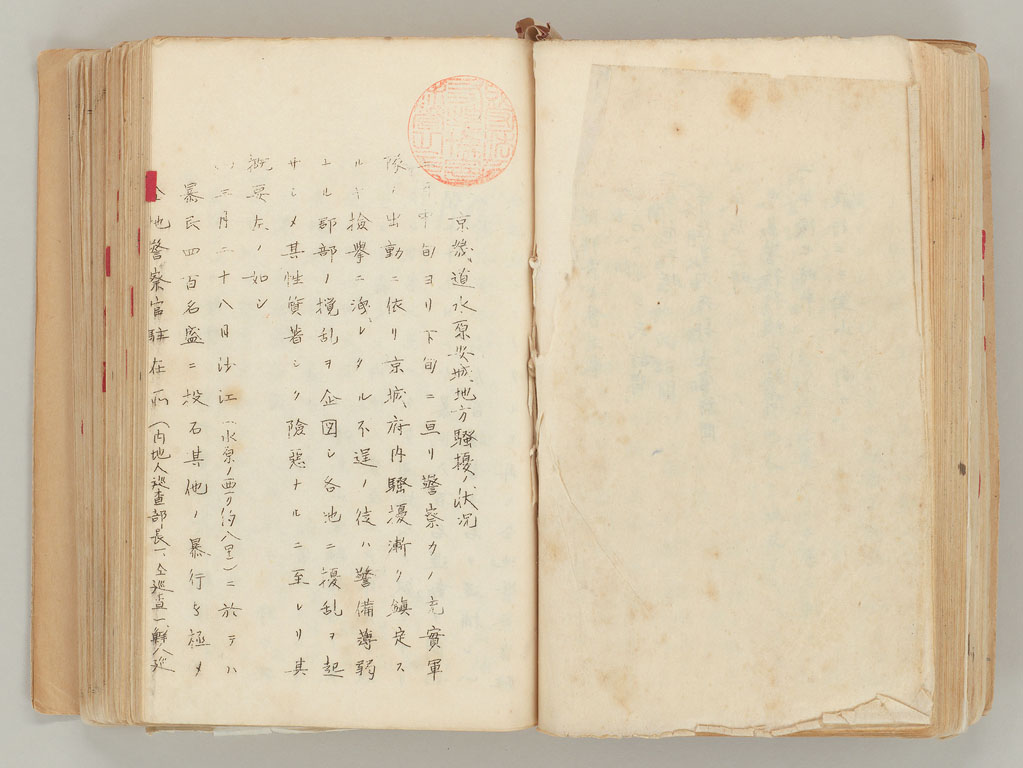 京畿道水原安城地方騒擾ノ状況
中旬ヨリ下旬ニ亘リ警察力ノ充實軍
隊ノ出動ニ依リ京城府内騒擾漸ク鎮定ス
ルヤ検挙ニ洩レタル不逞ノ徒ハ警備薄弱
ナル郡部ノ撹乱ヲ企図シ各地ニ擾乱ヲ起
サシメ其性質著シク険悪ナルニ至レリ其
概要左ノ如シ
三月二十八日沙江(水原ノ西方約八里)ニ於テハ
暴民四百名盛ニ投石其他ノ暴行ヲ極メ
仝地警察官駐在所(内地人巡査部長一、仝巡査一、鮮人巡